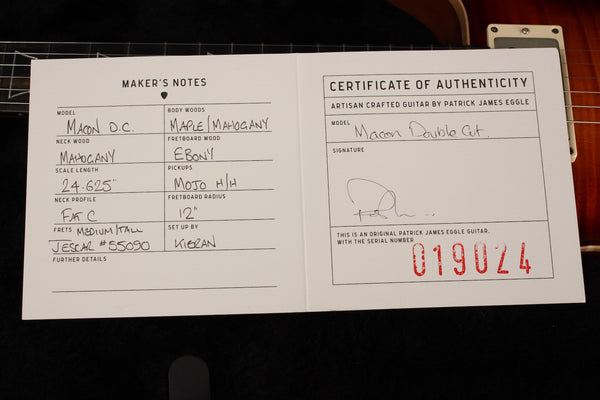 MAKER'S NOTES
MODEL
MACON D.C.
BODY WOODS
MAPLE/MAHOGANY
NECK WOOD
MAHOGANY
FRETBOARD WOOD
EBONY
SCALE LENGTH
24.625"
PICKUPS
MOJO H/H
NECK PROFILE
FAT C
FRETBOARD RADIUS
12"
FRETS MEDIUM/TALL
JESCAR #55090
SET UP BY
KIERAN
FURTHER DETAILS
CERTIFICATE OF AUTHENTICITY
ARTISAN CRAFTED GUITAR BY PATRICK JAMES EGGLE
MODEL
Macon Double Cut.
SIGNATURE
THIS IS AN ORIGINAL PATRICK JAMES EGGLE GUITAR,
WITH THE SERIAL NUMBER
019024